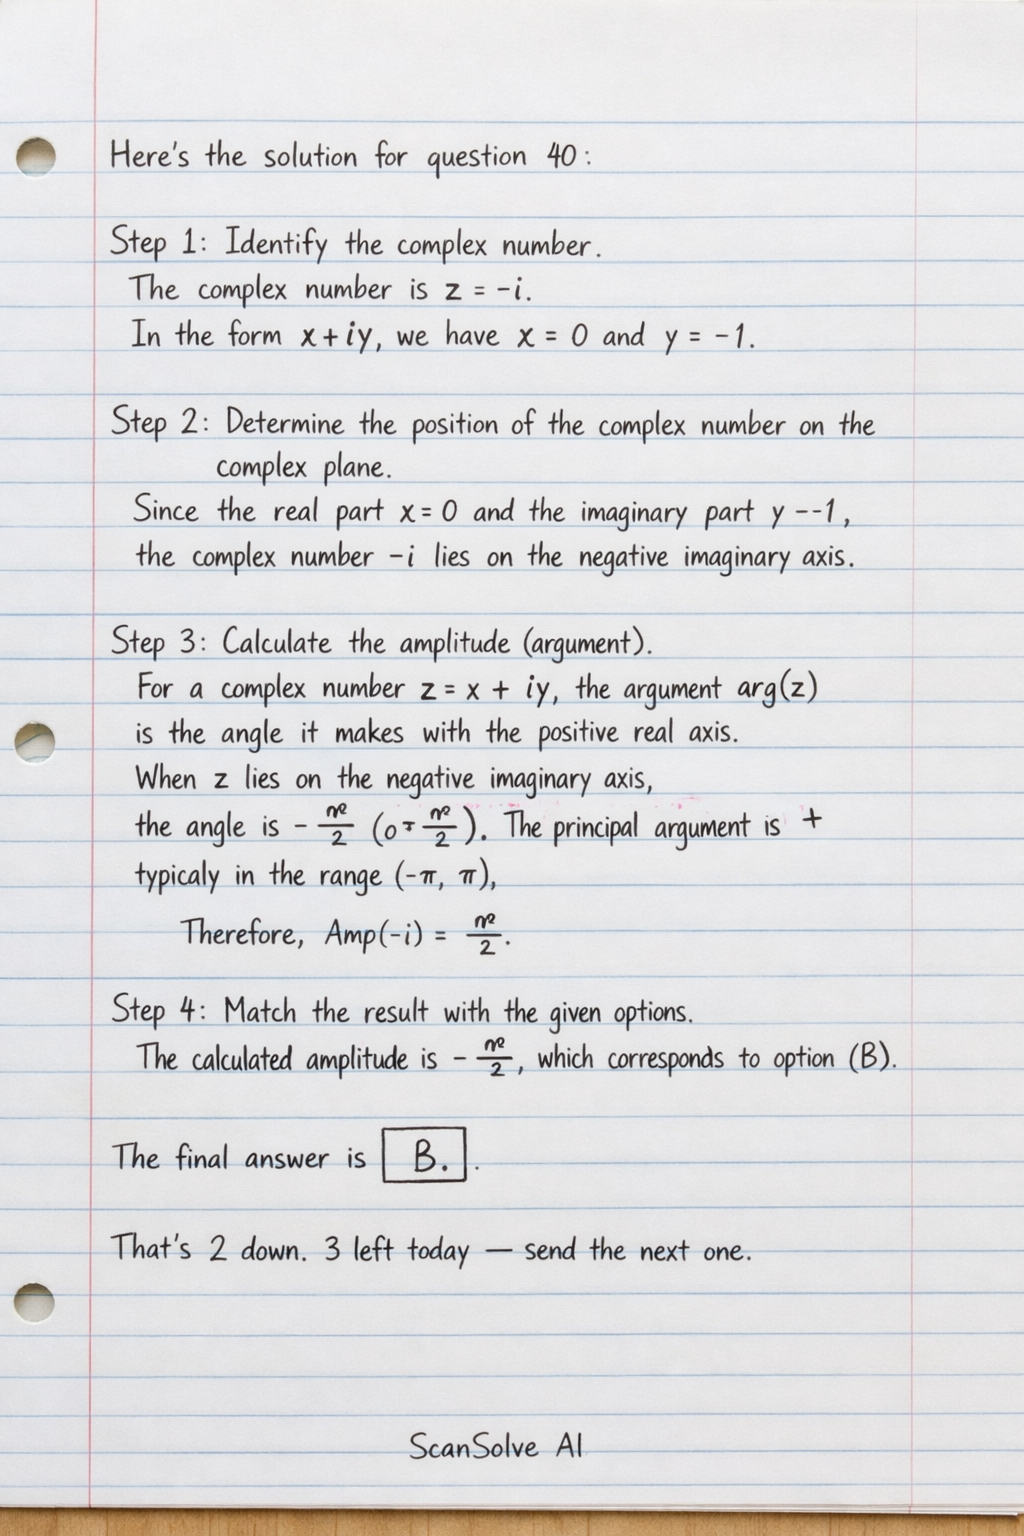 Here's the solution for question 40:
Step 1: Identify the complex number.
The complex number is z = -i.
In the form x + iy, we have x = 0 and y = -1.
Step 2: Determine the position of the complex number on the
complex plane.
Since the real part x = 0 and the imaginary part y --1,
the complex number -i lies on the negative imaginary axis.
Step 3: Calculate the amplitude (argument).
For a complex number z = x + iy, the argument arg(z)
is the angle it makes with the positive real axis.
When z lies on the negative imaginary axis,
the angle is - /2 ( /2). The principal argument is +
typicaly in the range (-π, π),
Therefore, Amp(-i) = /2.
Step 4: Match the result with the given options.
The calculated amplitude is - /2, which corresponds to option (B).
The final answer is B. .
That's 2 down. 3 left today — send the next one.
ScanSolve AI